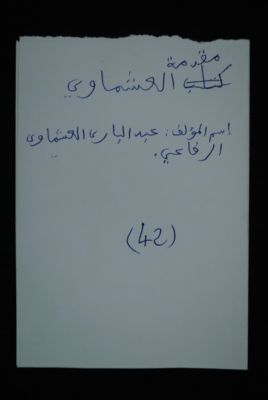 مقدمة
كتاب العشماوي
إسم المؤلف: عبد الباري العشماوي
الرفاعي.
(42)